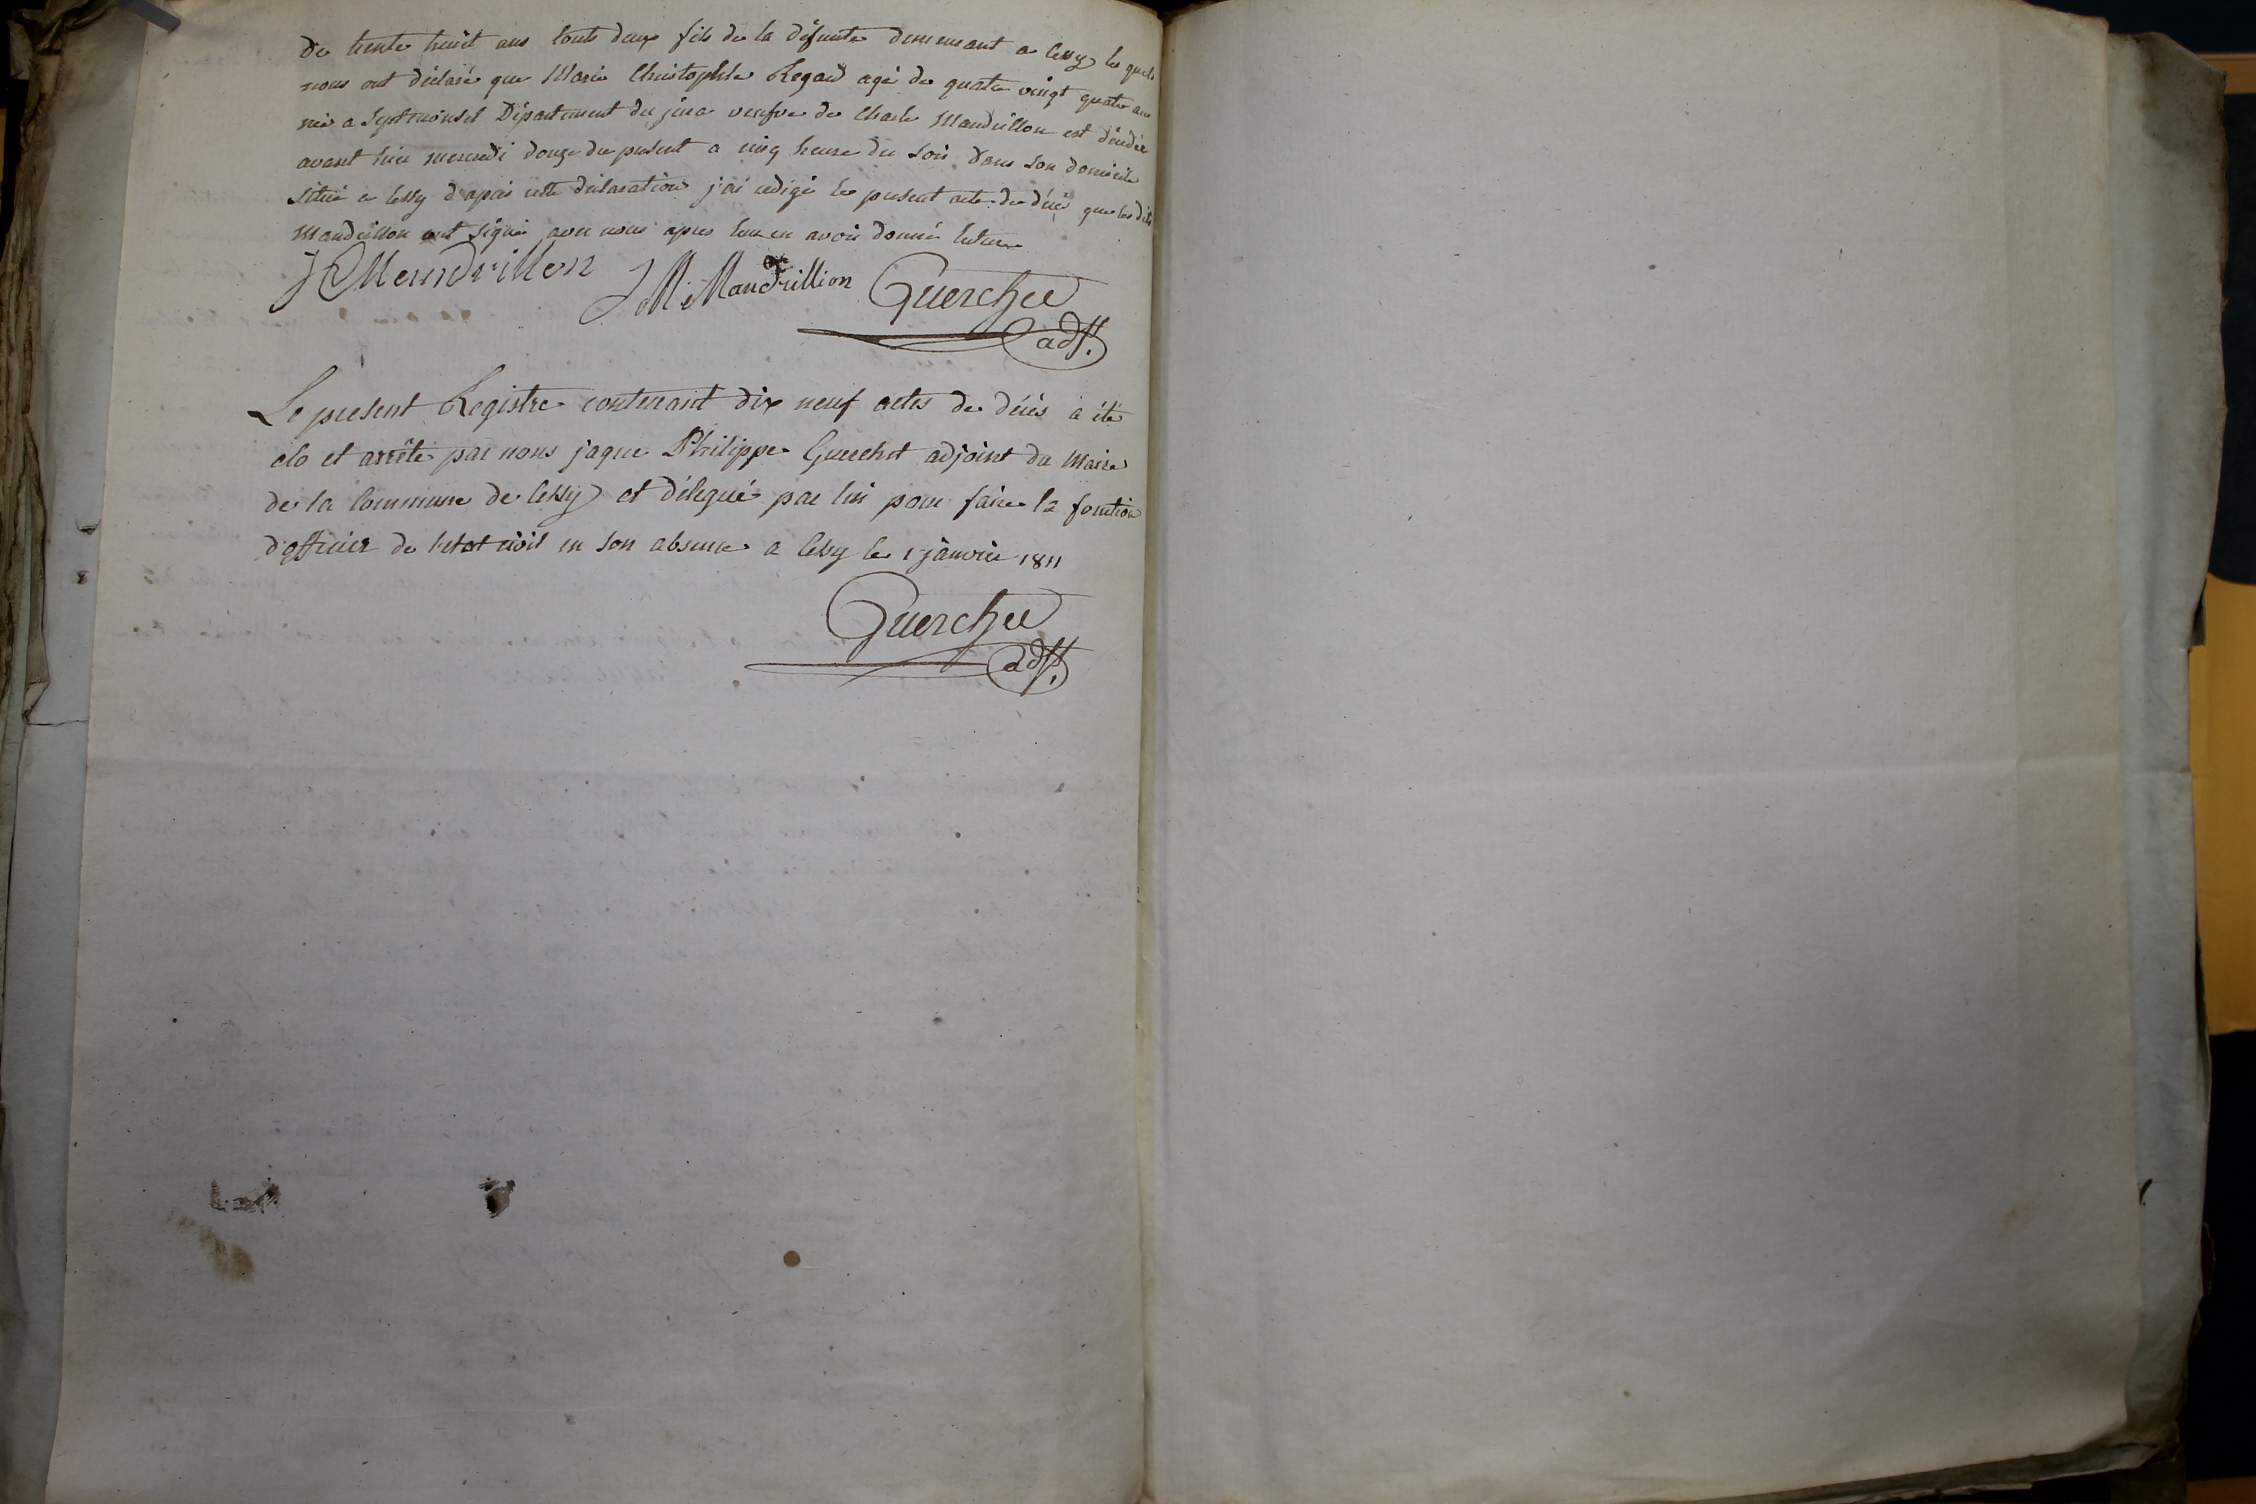 de trente huit ans touts deux fils de la défunte demeurant a Cessy les quels
nous ont déclaré que Marie Christophle Regad agé de quatre vingt quatre ans
née a Septmonsel Département du jura veufve de Charle Mandrillon est décédée
avant hier mercredi douze du present a cinq heure du soir dans son domicile
situé a Cessy d'apres cette déclaration j'ai redigé le present acte de décé que les dits
Mandrillon ont signé avec nous apres leur en avoir donné lecture
J C Mandrillon J M Mandrillion Guerchet
adjt.
Le present Registre contenant dix neuf actes de décès a été
clo et arrêté par nous jaque Philippe Guerchet adjoint du Maire
de la Commune de Cessy et délegué par lui pour faire la fonction
d'officier de l'etat civil en son absence a Cessy le 1 janvier 1811
Guerchet
adjt.